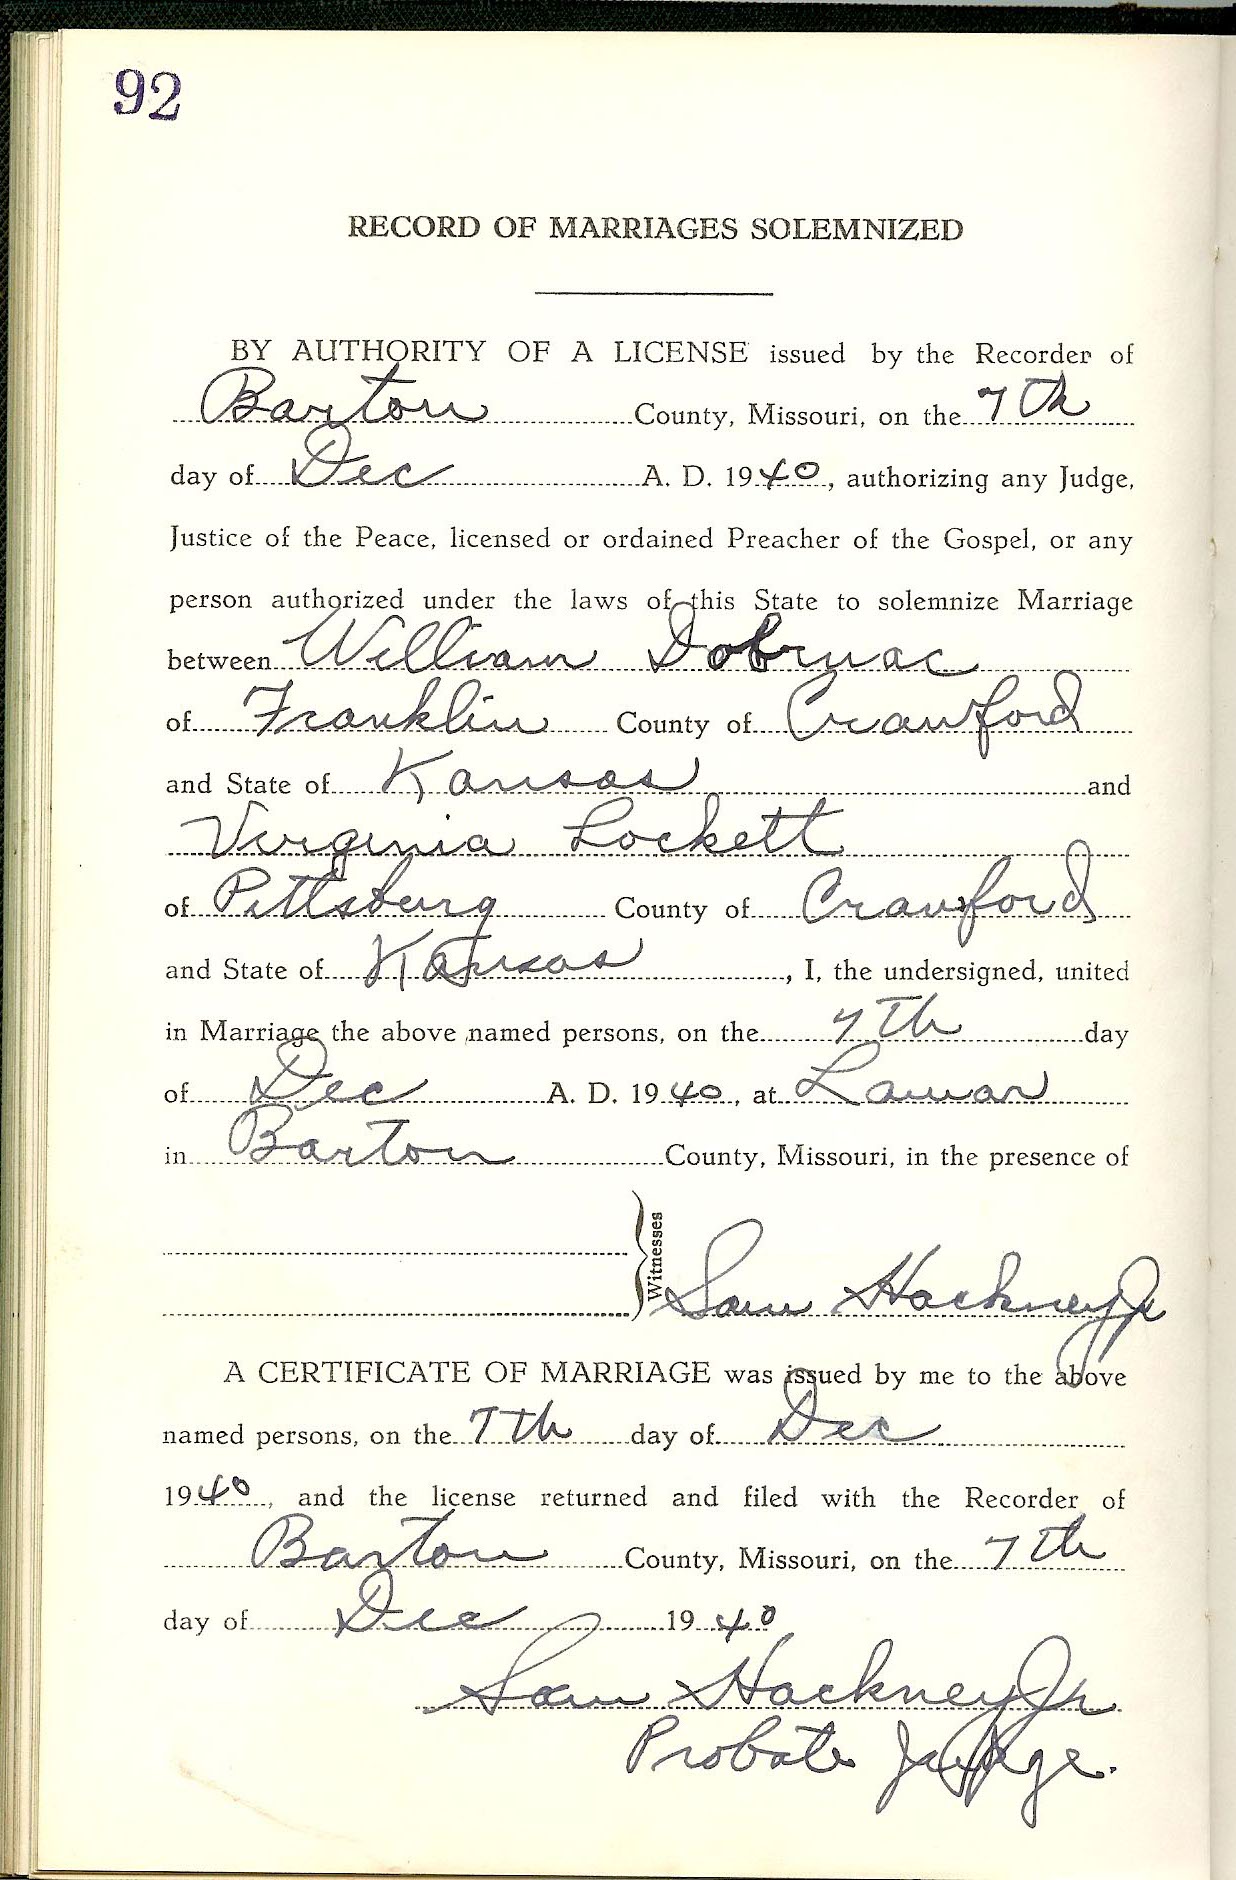 92
RECORD OF MARRIAGES SOLEMNIZED
BY AUTHORITY OF A LICENSE issued by the Recorder of
Barton County, Missouri, on the 7th
day of Dec A. D. 1940, authorizing any Judge,
Justice of the Peace, licensed or ordained Preacher of the Gospel, or any
person authorized under the laws of this State to solemnize Marriage
between William Dobrnac
of Franklin County of Crawford
and State of Kansas and
Virginia Lockett
of Pittsburg County of Crawford
and State of Kansas, I, the undersigned, united
in Marriage the above named persons, on the 7th day
of Dec A. D. 1940, at Lamar
in Barton County, Missouri, in the presence of
Witnesses
Sam Hackney Jr
A CERTIFICATE OF MARRIAGE was issued by me to the above
named persons, on the 7th day of Dec
1940, and the license returned and filed with the Recorder of
Barton County, Missouri, on the 7th
day of Dec 1940
Sam Hackney Jr.
Probate Judge.